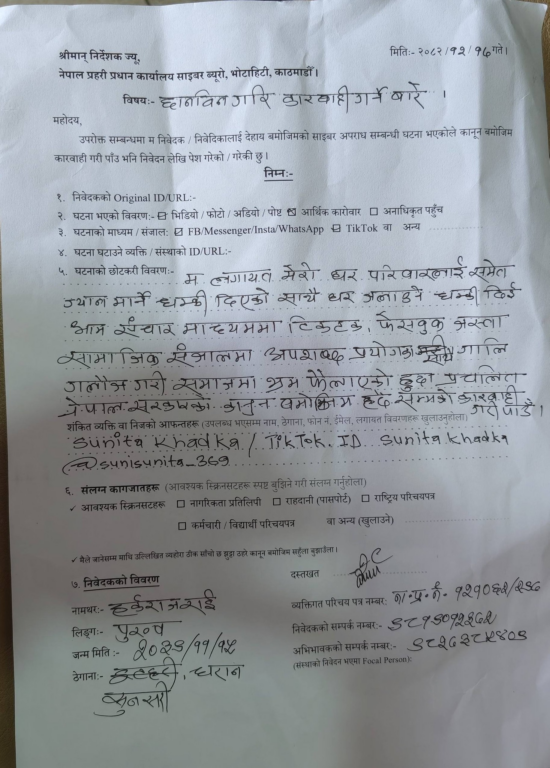 श्रीमान् निर्देशक ज्यू,
मितिः- २०८२/१२/१६ गते।
नेपाल प्रहरी प्रधान कार्यालय साइबर ब्यूरो, भोटाहिटी, काठमाडौँ।
विषयः- छानविन गरि कारवाही गर्ने बारे ।
महोदय,
उपरोक्त सम्बन्धमा म निवेदक / निवेदिकालाई देहाय बमोजिमको साइबर अपराध सम्बन्धी घटना भएकोले कानून बमोजिम
कारवाही गरी पाउँ भनि निवेदन लेखि पेश गरेको / गरेकी छु।
निम्नः-
१. निवेदकको Original ID/URL:-
२. घटना भएको विवरणः- ☑ भिडियो / फोटो / अडियो / पोष्ट ☑ आर्थिक कारोवार ☐ अनाधिकृत पहुँच
३. घटनाको माध्यम / संजालः ☑ FB/Messenger/Insta/WhatsApp ☑ TikTok वा अन्य
४. घटना घटाउने व्यक्ति / संस्थाको ID/URL:-
५. घटनाको छोटकरी विवरणः- म लगायत मेरो घर परिवारलाई समेत
ज्यान मार्ने धम्की दिएको साथै घर जलाउने धम्की दिई
आम संचार माध्यममा टिकटक, फेसवुक जस्ता
सामाजिक संजालमा अपशब्द प्रयोग गाली
गलौज गरी समाजमा भ्रम फैलाएको हुदा प्रचलित
नेपाल सरकारको कानुन बमोजिम हदै सम्मको कारवाही
गरी पाउँ।
शंकित व्यक्ति वा निजको आफन्तहरू (उपलब्ध भएसम्म नाम, ठेगाना, फोन नं, ईमेल, लगायत विवरणहरू खुलाउनुहोला)
Sunita Khadka / TikTok. ID Sunita Khadka
@sunisunita_369
६. संलग्न कागजातहरू (आवश्यक स्क्रिनसटहरू स्पष्ट बुझिने गरी संलग्न गर्नुहोला)
✓ आवश्यक स्क्रिनसटहरू ☐ नागरिकता प्रतिलिपी ☐ राहदानी (पासपोर्ट) ☐ राष्ट्रिय परिचयपत्र
☐ कर्मचारी / विद्यार्थी परिचयपत्र वा अन्य (खुलाउने)
✓ मैले जानेसम्म माथि उल्लिखित व्यहोरा ठीक साँचो छ झुठ्ठा ठहरे कानून बमोजिम सहुँला बुझाउँला।
७. निवेदकको विवरण
दस्तखत
नामथरः- हर्कराज राई
व्यक्तिगत परिचय पत्र नम्बरः ना.प्र.नं.
लिङ्गः- पुरुष
निवेदकको सम्पर्क नम्बरः-
जन्म मितिः-
अभिभावकको सम्पर्क नम्बरः-
(संस्थाको निवेदन भएमा Focal Person):
ठेगानाः- धरान
सुनसरी